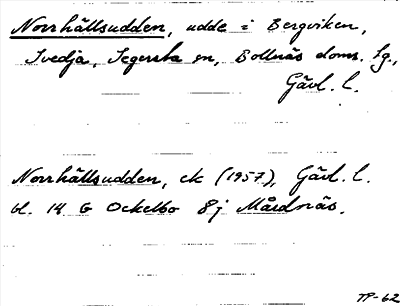 Norrhällsudden, udde i Bergviken,
Svedja, Segersta sn, Bollnäs doms. hg.,
Gävl. l.
Norrhällsudden, ek (1957), Gävl. l.
bl. 14 G Ockelbo 8j Mårdnäs.
TP-62